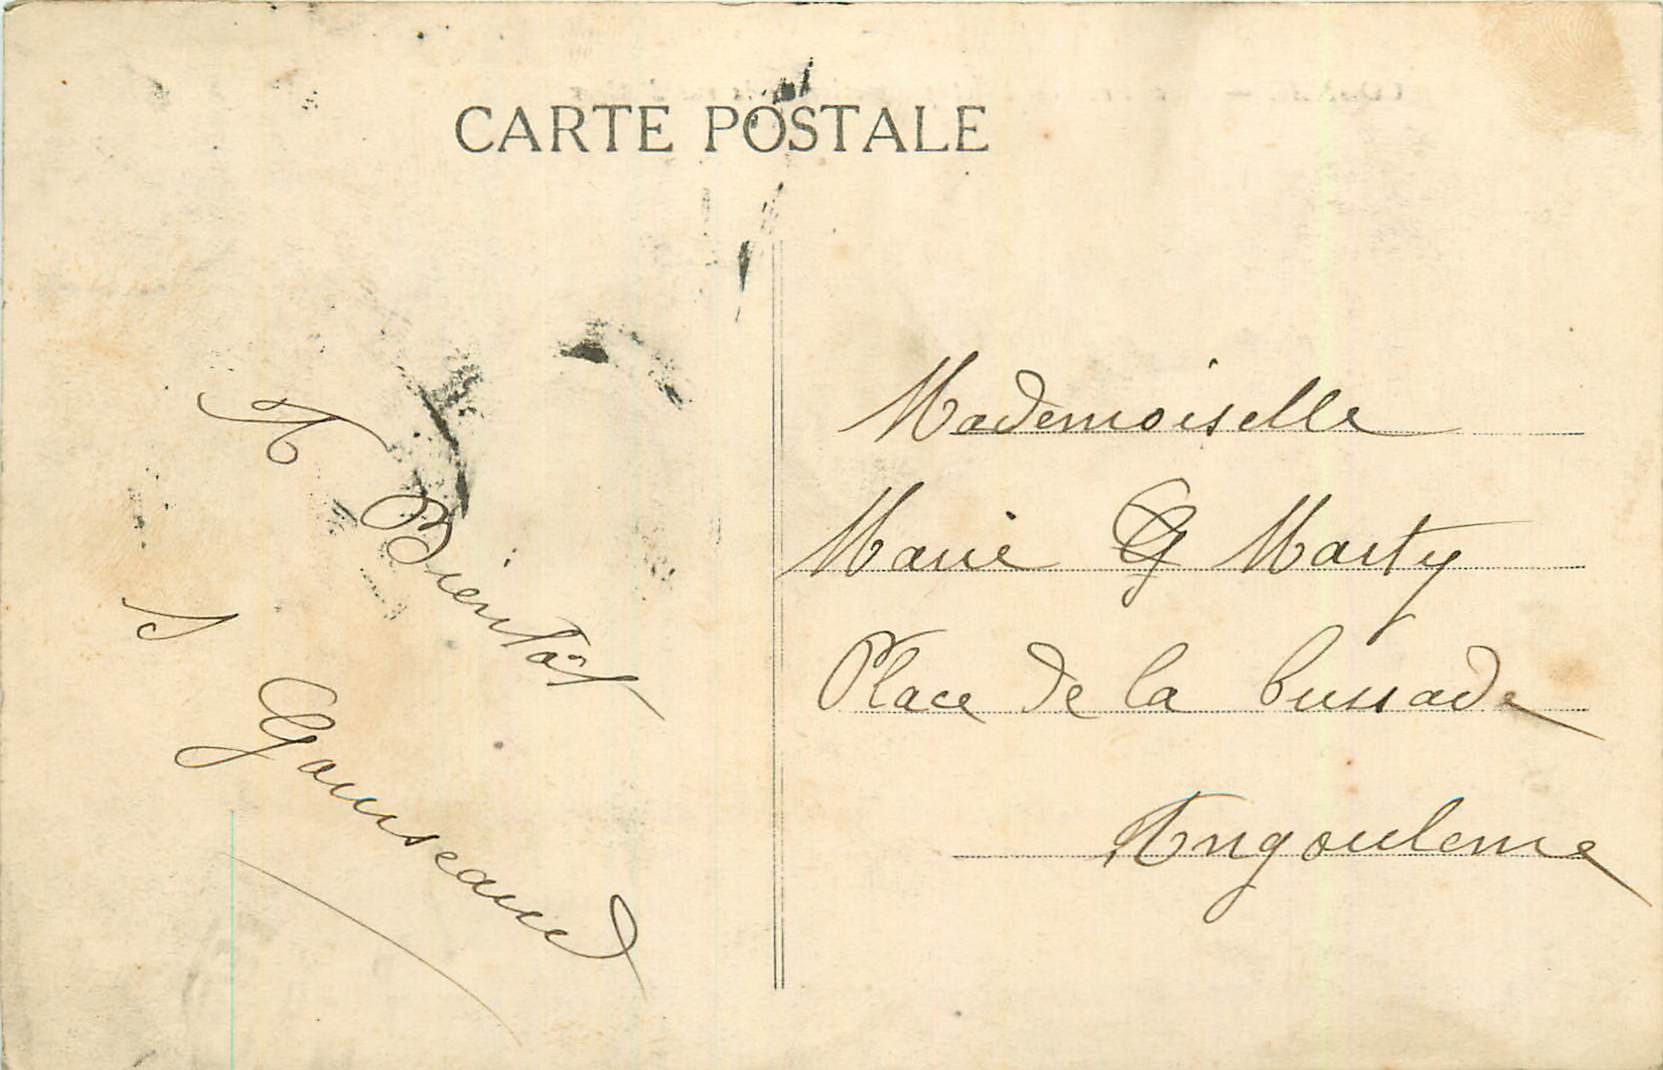 CARTE POSTALE
A Bientôt
Mademoiselle
Marie G Marty
Place de la bussade
Angouleme